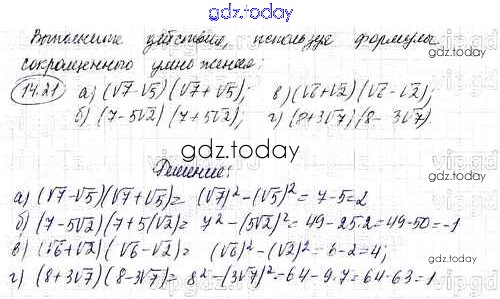 gdz.today
Выполните действия, используя формулы
сокращенного умножения:
14.21 а) (√7-√5)(√7+√5); в) (√6+√2)(√6-√2);
б) (7-5√2)(7+5√2); г) (8+3√7)(8-3√7).
gdz.today
Решение:
а) (√7-√5)(√7+√5)= (√7)²-(√5)²=7-5=2
б) (7-5√2)(7+5√2)= 7²-(5√2)²=49-25.2=49-50=-1
в) (√6+√2)(√6-√2)= (√6)²-(√2)²=6-2=4;
г) (8+3√7)(8-3√7)= 8²-(3√7)²=64-9.7=64-63=1
gdz.today